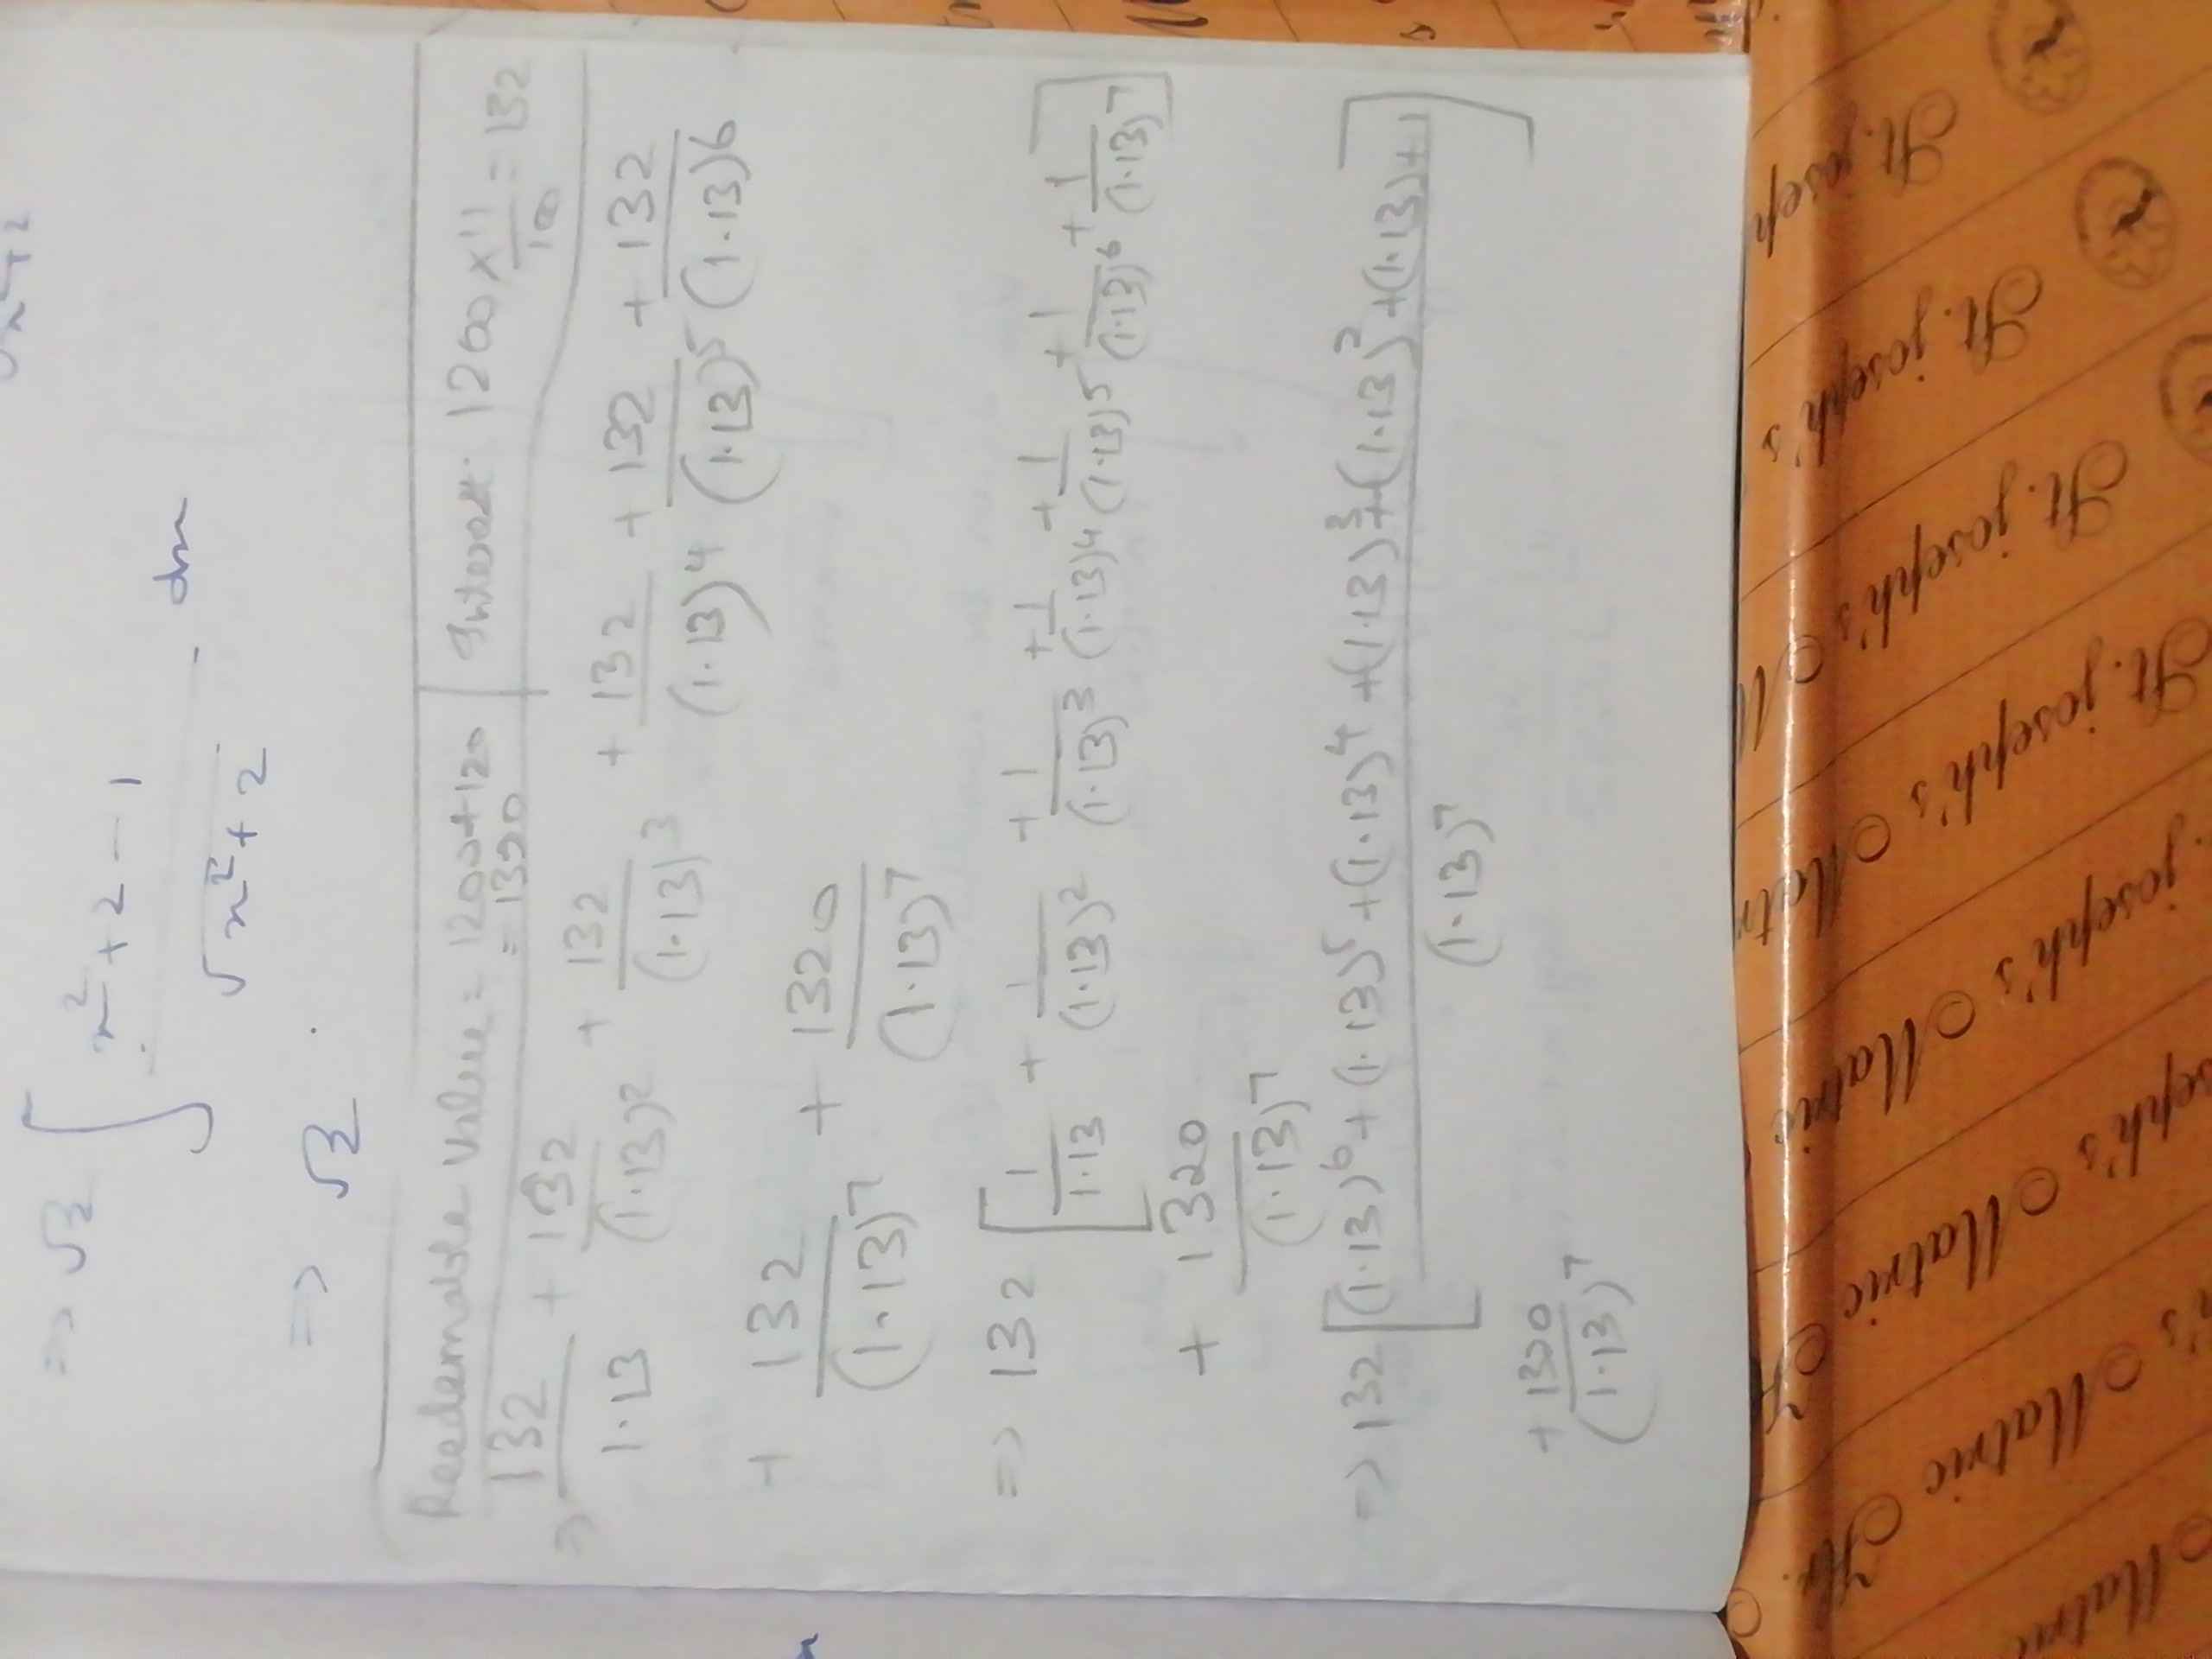 => √2 ∫ x²+2-1 / √x²+2 dx
=> √2
Reedemable Value = 1200+120 | Interest. 1200 x 11/100 = 132
= 1320
=> 132/1.13 + 132/(1.13)² + 132/(1.13)³ + 132/(1.13)⁴ + 132/(1.13)⁵ + 132/(1.13)⁶
+ 132/(1.13)⁷ + 1320/(1.13)⁷
=> 132 [ 1/1.13 + 1/(1.13)² + 1/(1.13)³ + 1/(1.13)⁴ + 1/(1.13)⁵ + 1/(1.13)⁶ + 1/(1.13)⁷ ]
+ 1320/(1.13)⁷
=> 132 [ (1.13)⁶ + (1.13)⁵ + (1.13)⁴ + (1.13)³ + (1.13)² + (1.13) + 1 / (1.13)⁷ ]
+ 1320/(1.13)⁷
St. josep
St. joseph's
St. joseph's M
St. joseph's Matr
joseph's Matric
seph's Matric
's Matric Hr.
Matric